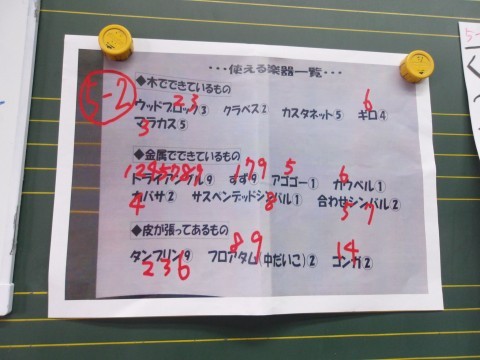 ・・・使える楽器一覧・・・
5-2
◆木でできているもの
2 3 6
ウッドブロック③ クラベス② カスタネット⑤ ギロ④
マラカス⑤
3
◆金属でできているもの
1 2 4 5 7 8 9 1 7 9 5 6
トライアングル⑨ すず⑨ アゴーゴー① カウベル①
カバサ② サスペンデッドシンバル① 合わせシンバル②
4 8 5 7
◆皮が張ってあるもの
8 9 14
タンブリン⑨ フロアタム(中だいこ)② コンガ②
2 3 6
5-